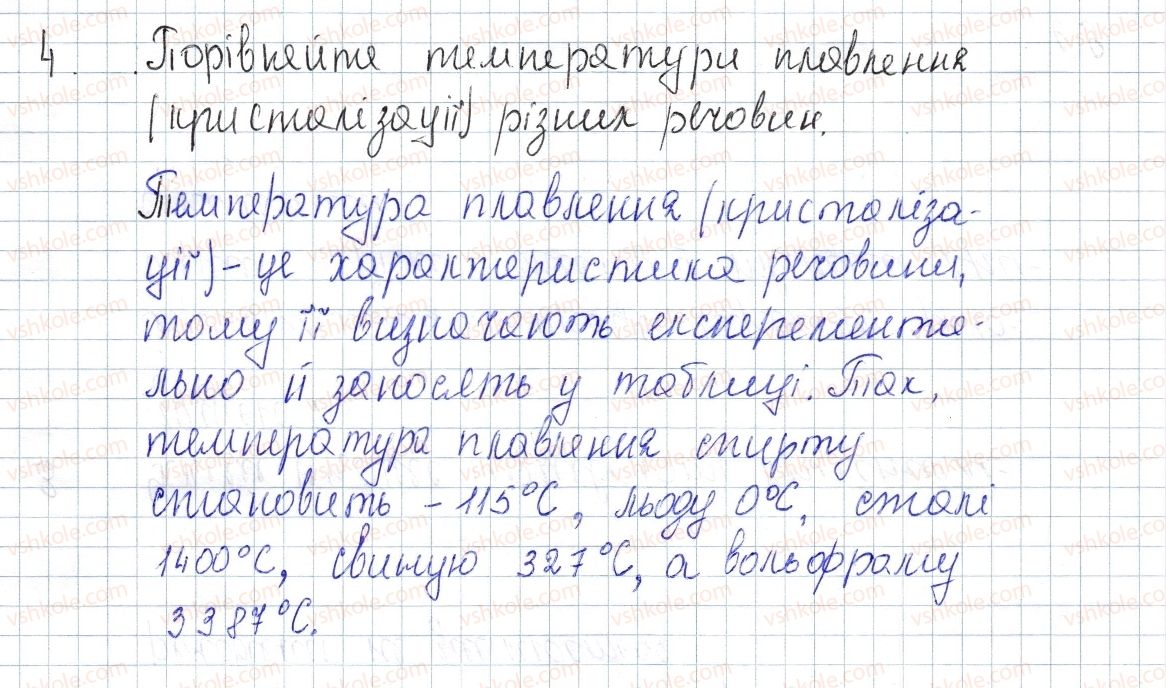 4. Порівняйте температури плавлення
(кристалізації) різних речовин.
Температура плавлення (кристаліза-
ції) - це характеристика речовини,
тому її визначають експеремента-
льно й заносять у таблиці. Так,
температура плавлення спирту
становить -115°С, льоду 0°С, сталі
1400°С, свинцю 327°С, а вольфраму
3387°С.